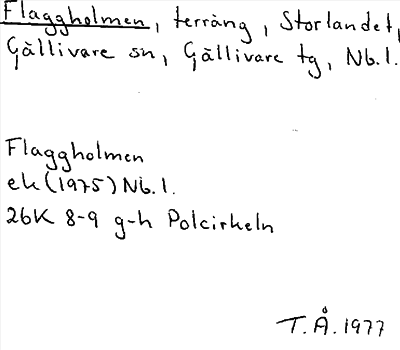 Flaggholmen, terräng, Storlandet,
Gällivare sn, Gällivare tg, Nb.l.
Flaggholmen
ek (1975) Nb.l.
26K 8-9 g-h Polcirkeln
T.Å. 1977